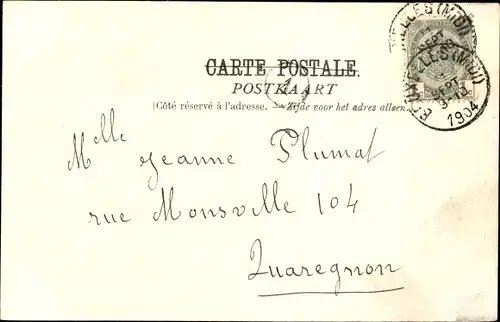 CARTE POSTALE.
POSTKAART
(Côté réservé à l'adresse. — Zijde voor het adres alleen.)
Mlle Jeanne Plumat
rue Monsville 104
Quaregnon
BRUXELLES (MIDI)
SEPT
1904